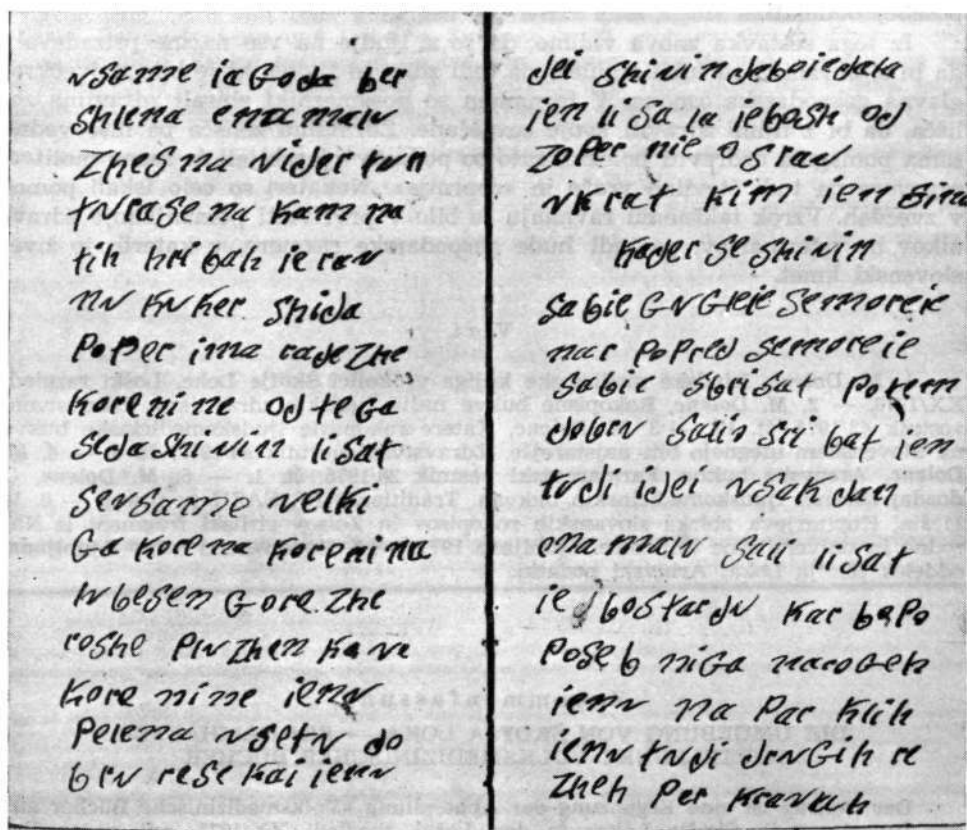 vsame ia Goda ber
Shlena ena malv
Zhes na vider tvn
tvrase na kam na
tih hribah ie rav
nv kvker Shida
Poper ima rade Zhe
korenine od tega
seda Shivin lisat
servame velki
Ga korena korenina
tvbesen Gore Zhe
roshe Plvzhen kave
kore nine ienv
Perena vsetv do
brv rese kai ienv
del Shivin daboiedala
ien lisala iebosh od
Zoper nie o srav
vkrat kim ien Sina
kader se Shivin
sabie GvGleie semoreie
nar popred semoreie
sabie sbrisat potem
dobrv Salio stlbat ien
tvdi idei vsak dan
ena malv Sali lisat
ie bostardv kar bepo
poseb niGa narobeh
ienv na Par klih
ienv tvdi drvGih re
Zheh Per kravah